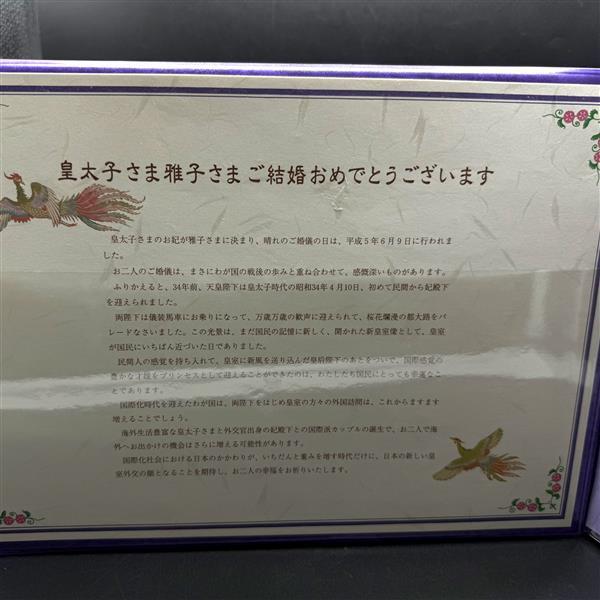 皇太子さま雅子さまご結婚おめでとうございます
皇太子さまのお妃が雅子さまに決まり、晴れのご婚儀の日は、平成5年6月9日に行われま
した。
お二人のご婚儀は、まさにわが国の戦後の歩みと重ね合わせて、感慨深いものがあります。
ふりかえると、34年前、天皇陛下は皇太子時代の昭和34年4月10日、初めて民間から妃殿下
を迎えられました。
両陛下は儀装馬車にお乗りになって、万歳万歳の歓声に迎えられて、桜花爛漫の都大路をパ
レードなさいました。この光景は、まだ国民の記憶に新しく、開かれた新皇室像として、皇室
が国民にいちばん近づいた日でありました。
民間人の感覚を持ち入れて、皇室に新風を送り込んだ皇后陛下のあとをついで、国際感覚の
豊かな才媛をプリンセスとして迎えることができたのは、わたしたち国民にとっても幸運なこ
とであります。
国際化時代を迎えたわが国は、両陛下をはじめ皇室の方々の外国訪問は、これからますます
増えることでしょう。
海外生活豊富な皇太子さまと外交官出身の妃殿下との国際派カップルの誕生で、お二人で海
外へお出かけの機会はさらに増える可能性があります。
国際化社会における日本のかかわりが、いちだんと重みを増す時代だけに、日本の新しい皇
室外交の顔となることを期待し、お二人の幸福をお祈りいたします。